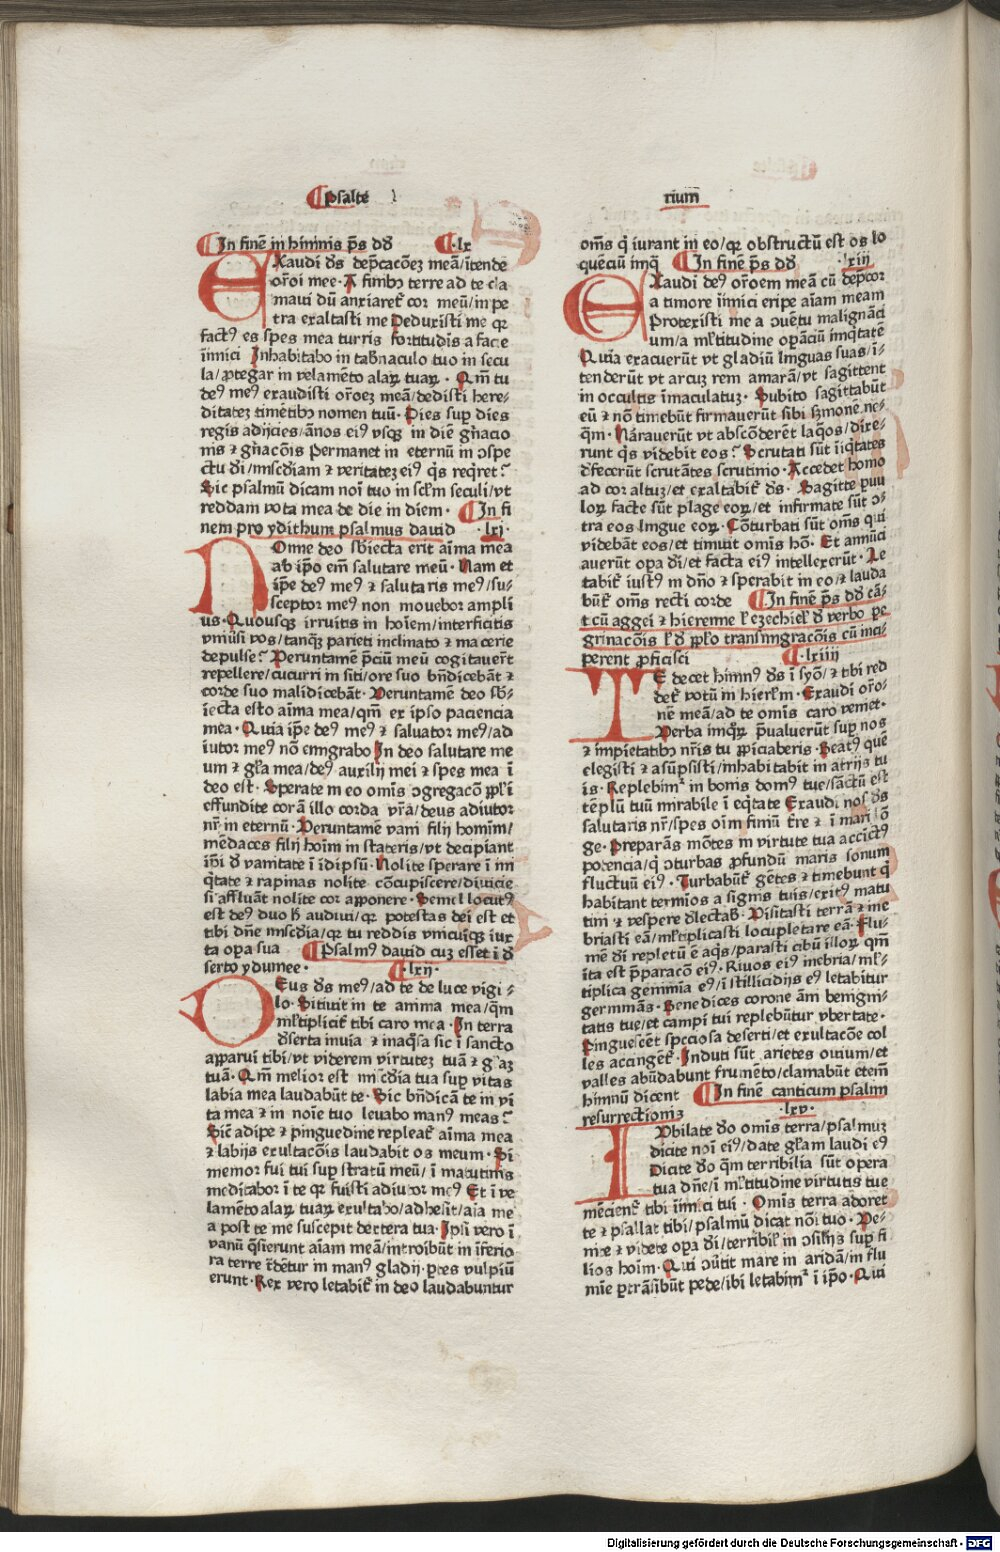 psalte
rium̄
In finē in himnis p̄s dd̄ lx
EXaudi ds̄ dep̄cacōez meā/ītende
or̄oi mee· A finibꝫ terre ad te cla
maui dū anxiaret᷒ cor meū/in pe
tra exaltasti me Deduxisti me qꝛ
factꝰ es spes mea turris fortitudis a facie
inīmici Inhabitabo in tab̄naculo tuo in secu
la/ꝓtegar in velamēto alaꝝ tuaꝝ· Qm̄ tu
deꝰ meꝰ exaudisti or̄oez meā/dedisti here-
ditatez timētibꝫ nomen tuū· Dies suꝑ dies
regis adijcies/ānos eiꝰ vsqꝫ in diē gn̄acio
nis ⁊ gn̄acōis Permanet in eternū in ꝯspe
ctu di/mis̄cdiam ⁊ veritatez eiꝰ q̄s reqͥret?
Sic psalmū dicam noī tuo in scl̄m seculi/vt
reddam vota mea de die in diem· In fi
nem pro ydithum psalmus dauid lxi·
NOnne deo sb̄iecta erit aīma mea
ab ip̄o em̄ salutare meū· Nam et
ip̄e deꝰ meꝰ ⁊ salutaris meꝰ/su-
sceptor meꝰ non mouebor ampli
us· Quousqꝫ irruitis in hoīem/interficitis
vniūsi vos/tanqꝫ parieti inclinato ⁊ macerie
depulse? Veruntamē p̄ciū meū cogitauer̄t
repellere/cucurri in siti/ore suo bn̄dicebāt ⁊
corde suo maledicebāt· Veruntamē deo sb̄-
iecta esto aīma mea/qm̄ ex ipso paciencia
mea· Quia ip̄e deꝰ meꝰ ⁊ saluator meꝰ/ad
iutor meꝰ nō emigrabo In deo salutare me
um ⁊ gl̄a mea/deꝰ auxilij mei ⁊ spes mea ī
deo est· Sperate in eo omīs ꝯgregacō ppl̄i
effundite corā illo corda vr̄a/deus adiutor
nr̄ in eternū· Veruntamē vani filij hominū/
mēdaces filij hoīm in stateris/vt decipiant
ip̄i d̄ vanitate ī idipsū· Nolite sperare ī ini
q̄tate ⁊ rapinas nolite cōcupiscere/diuicie
si affluāt nolite cor apponere· Semel locutꝰ
est deꝰ duo h̄ audiui/qꝛ potestas dei est et
tibi dn̄e mis̄cdia/qꝛ tu reddis vnicuiqꝫ iux
ta opa sua Psalmꝰ dauid cuz esset ī d̄
serto ydumee· lxij·
DEus ds̄ meꝰ/ad te de luce vigi-
lo· Sitiuit in te anima mea/qm̄
ml̄tiplicit᷒ tibi caro mea· In terra
d̄serta inuia ⁊ inaq̄sa sic ī sancto
apparui tibi/vt viderem virtutez tuā ⁊ gl̄az
tuā· Qm̄ melior est mis̄cdia tua suꝑ vitas
labia mea laudabūt te· Sic bn̄dicā te in vi
ta mea ⁊ in noīe tuo leuabo manꝰ meas?
Sic̄ adipe ⁊ pinguedine repleat᷒ aīma mea
⁊ labijs exultacōis laudabit os meum· Si
memor fui tui suꝑ stratū meū/ī matutinis
meditabor ī te qꝛ fuisti adiutor meꝰ Et ī ve
lamēto alaꝝ tuaꝝ exultabo/adhesit/aīa me
a post te me suscepit dextera tua· Ipsi vero ī
vanū q̄sierunt aīam meā/introibūt in īferio
ra terre tr̄dētur in manꝰ gladij· ꝑtes vulpiū
erunt· Rex vero letabit᷒ in deo laudabuntur
om̄s q̄ iurant in eo/qꝛ obstructū est os lo
quenciū iniq̄ In finē p̄s dd̄ lxiij
EXaudi deꝰ or̄oem meā cū dep̄cor
a timore inīmici eripe aīam meam
Protexisti me a ꝯuētu malignāci
um/a ml̄titudine oꝑāciū iniq̄tatē
Quia exacuerūt vt gladiū linguas suas/ī-
tenderūt vt arcuz rem amarā/vt sagittent
in occultis īmaculatuz· Subito sagittabūt
eū ⁊ nō timebūt firmauerūt sibi sꝫmonē ne-
q̄m· Nārauerūt vt abscōderēt laq̄os/dixe-
runt q̄s videbit eos? Scrutati sūt iīq̄tates
d̄fecerūt scrutātes scrutinio· Accedet homo
ad cor altuz/et exaltabit᷒ ds̄· Sagitte ꝑuu
loꝝ facte sūt plage eoꝝ/et infirmate sūt ꝯ-
tra eos lingue eoꝝ· Cōturbati sūt om̄s qui
videbāt eos/et timuit omīs hō· Et annūci
auerūt opa di/et facta eiꝰ intellexerūt· Le
tabit᷒ iustꝰ in dn̄o ⁊ sperabit in eo/⁊ lauda
būt᷒ om̄s recti corde In finē p̄s dd̄ cā-
t cū aggei ⁊ hieremie l᷒ ezechiel᷒ d̄ verbo pe
grinacōis l᷒ d̄ ppl̄o transmigracōis cū inci-
perent ꝓficisci lxiiij
TE decet himnꝰ ds̄ ī syō/⁊ tibi red
det᷒ votū in hierl̄m· Exaudi or̄o-
nē meā/ad te omīs caro veniet·
Verba iniqͦꝝ p̄ualuerūt suꝑ nos
⁊ impietatibꝫ nr̄is tu ꝓpiciaberis· Beatꝰ quē
elegisti ⁊ asūpsisti/inhabitabit in atrijs tu
is· Replebimᷣ in bonis domꝰ tue/sāctū est
tēplū tuū mirabile ī eq̄tate Exaudi nos ds̄
salutaris nr̄/spes oīm finiū tr̄e ⁊ ī mari lō
ge· Preparās mōtes in virtute tua accīctꝰ
potencia/q̄ ꝯturbas ꝓfundū maris sonum
fluctuū eiꝰ· Turbabūt᷒ gētes ⁊ timebunt q̄
habitant termios a signis tuis/exitꝰ matu
tini ⁊ vespere d̄lectab̄· Visitasti terrā ⁊ ine
briasti eā/ml̄tiplicasti locupletare eā· Flu-
mē di repletū ē aq̄s/parasti cibū illoꝝ qm̄
ita est p̄paracō eiꝰ· Riuos eiꝰ inebria/ml̄-
tiplica gemmia eꝰ/ī stillicidijs eꝰ letabitur
germinās· Benedices corone ām benigni-
tatis tue/et campi tui replebūtur vbertate·
Pinguescēt speciosa deserti/et exultacōe col
les accinget᷒· Induti sūt arietes ouium/et
valles abūdabunt frumēto/clamabūt etem̄
himnū dicent In finē canticum psalm
resurrectionis lxv·
IVbilate d̄o omīs terra/psalmuz
dicite noī eiꝰ/date gl̄am laudi eꝰ
Dicite d̄o q̄m terribilia sūt opera
tua dn̄e/ī ml̄titudine virtutis tue
mēcient᷒ tibi inīmici tui· Omīs terra adoret
te ⁊ psallat tibi/psalmū dicat nōi tuo· Ve-
nite ⁊ videte opa di/terribil᷒ in ꝯsilijs suꝑ fi
lios hoīm· Qui ꝯūtit mare in aridā/in flu
mīe ꝑtrāsibūt pede/ibi letabimᷣ ī ip̄o· Qui
Digitalisierung gefördert durch die Deutsche Forschungsgemeinschaft - DFG